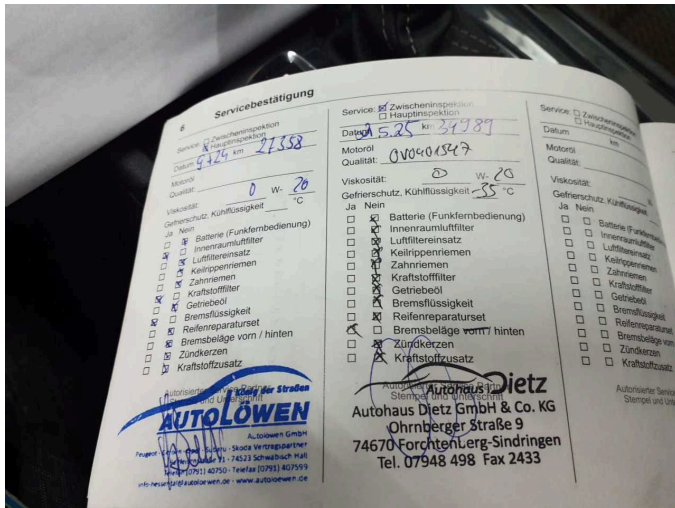 6
Servicebestätigung
Service: Zwischeninspektion
Hauptinspektion
Datum 9.7.24 km 27358
Motoröl
Qualität:
Viskosität: 0 W- 20
Gefrierschutz, Kühlflüssigkeit °C
Ja Nein
Batterie (Funkfernbedienung)
Innenraumluftfilter
Luftfiltereinsatz
Keilrippenriemen
Zahnriemen
Kraftstofffilter
Getriebeöl
Bremsflüssigkeit
Reifenreparaturset
Bremsbeläge vorn / hinten
Zündkerzen
Kraftstoffzusatz
Autorisierter Service Partner
Stempel und Unterschrift
König der Straßen
AUTOLÖWEN
Autolöwen GmbH
Peugeot - Citroën - Opel - Subaru - Skoda Vertragspartner
31 - 74523 Schwäbisch Hall
Telefon (0791) 40750 - Telefax (0791) 407599
info-hessental@autoloewen.de - www.autoloewen.de
Service: Zwischeninspektion
Hauptinspektion
Datum 5.25 km 34989
Motoröl
Qualität: OV0401547
Viskosität: 0 W- 20
Gefrierschutz, Kühlflüssigkeit -35 °C
Ja Nein
Batterie (Funkfernbedienung)
Innenraumluftfilter
Luftfiltereinsatz
Keilrippenriemen
Zahnriemen
Kraftstofffilter
Getriebeöl
Bremsflüssigkeit
Reifenreparaturset
Bremsbeläge vorn / hinten
Zündkerzen
Kraftstoffzusatz
Autorisierter Service Partner
Stempel und Unterschrift
Autohaus Dietz
Autohaus Dietz GmbH & Co. KG
Ohrnberger Straße 9
74670 Forchtenberg-Sindringen
Tel. 07948 498 Fax 2433
Service: Zwischeninspektion
Hauptinspektion
Datum km
Motoröl
Qualität:
Viskosität:
Gefrierschutz, Kühlflüssigkeit
Ja Nein
Batterie (Funkfernbedienung
Innenraumluftfilter
Luftfiltereinsatz
Keilrippenriemen
Zahnriemen
Kraftstofffilter
Getriebeöl
Bremsflüssigkeit
Reifenreparaturset
Bremsbeläge vorn
Zündkerzen
Kraftstoffzusatz
Autorisierter Servic
Stempel und Unt